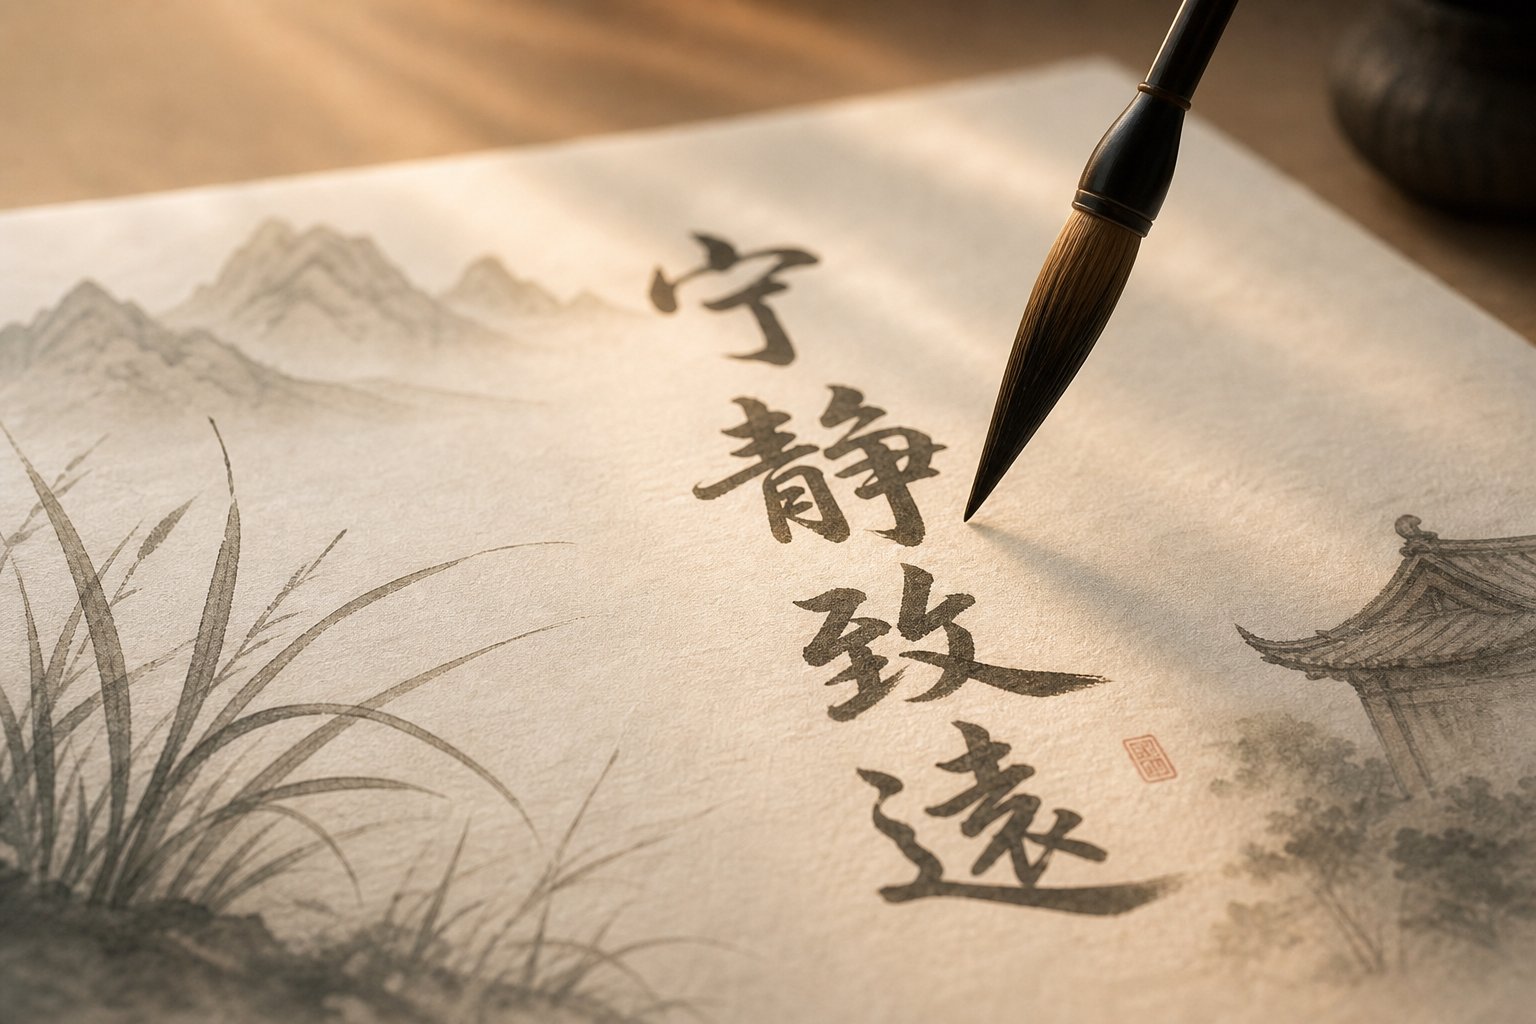 宁静致遠